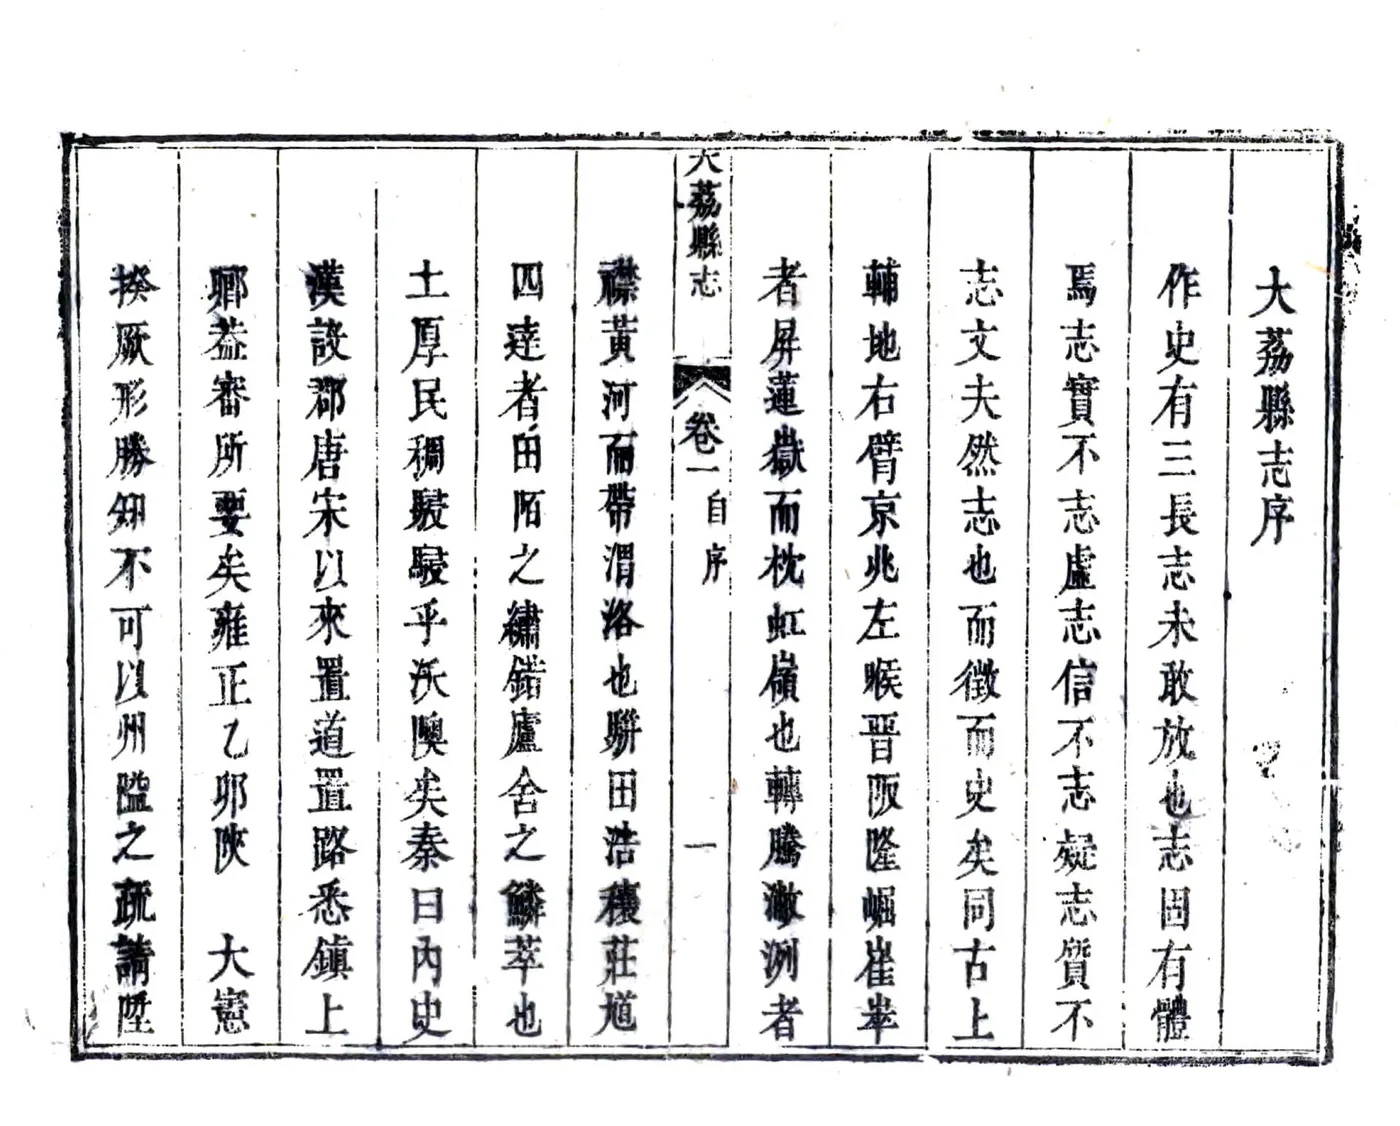 大荔縣志序
作史有三長志未敢放也志固有體
焉志實不志虛志信不志疑志質不
志文夫然志也而徵而史矣同古上
輔地右臂京兆左喉晉阪隆崛崔崒
者屏蓮嶽而枕虹嶺也轉騰潎洌者
大荔縣志 卷一 自序 一
襟黃河而帶渭洛也駢田浩穰莊馗
四達者甶陌之繡錯廬舍之鱗萃也
土厚民稠駸駸乎沃隩矣秦曰內史
漢設郡唐宋以來置道置路悉鎮上
郷葢審所要矣雍正乙卯陝 大憲
揆厥形勝知不可以州隘之疏請陞